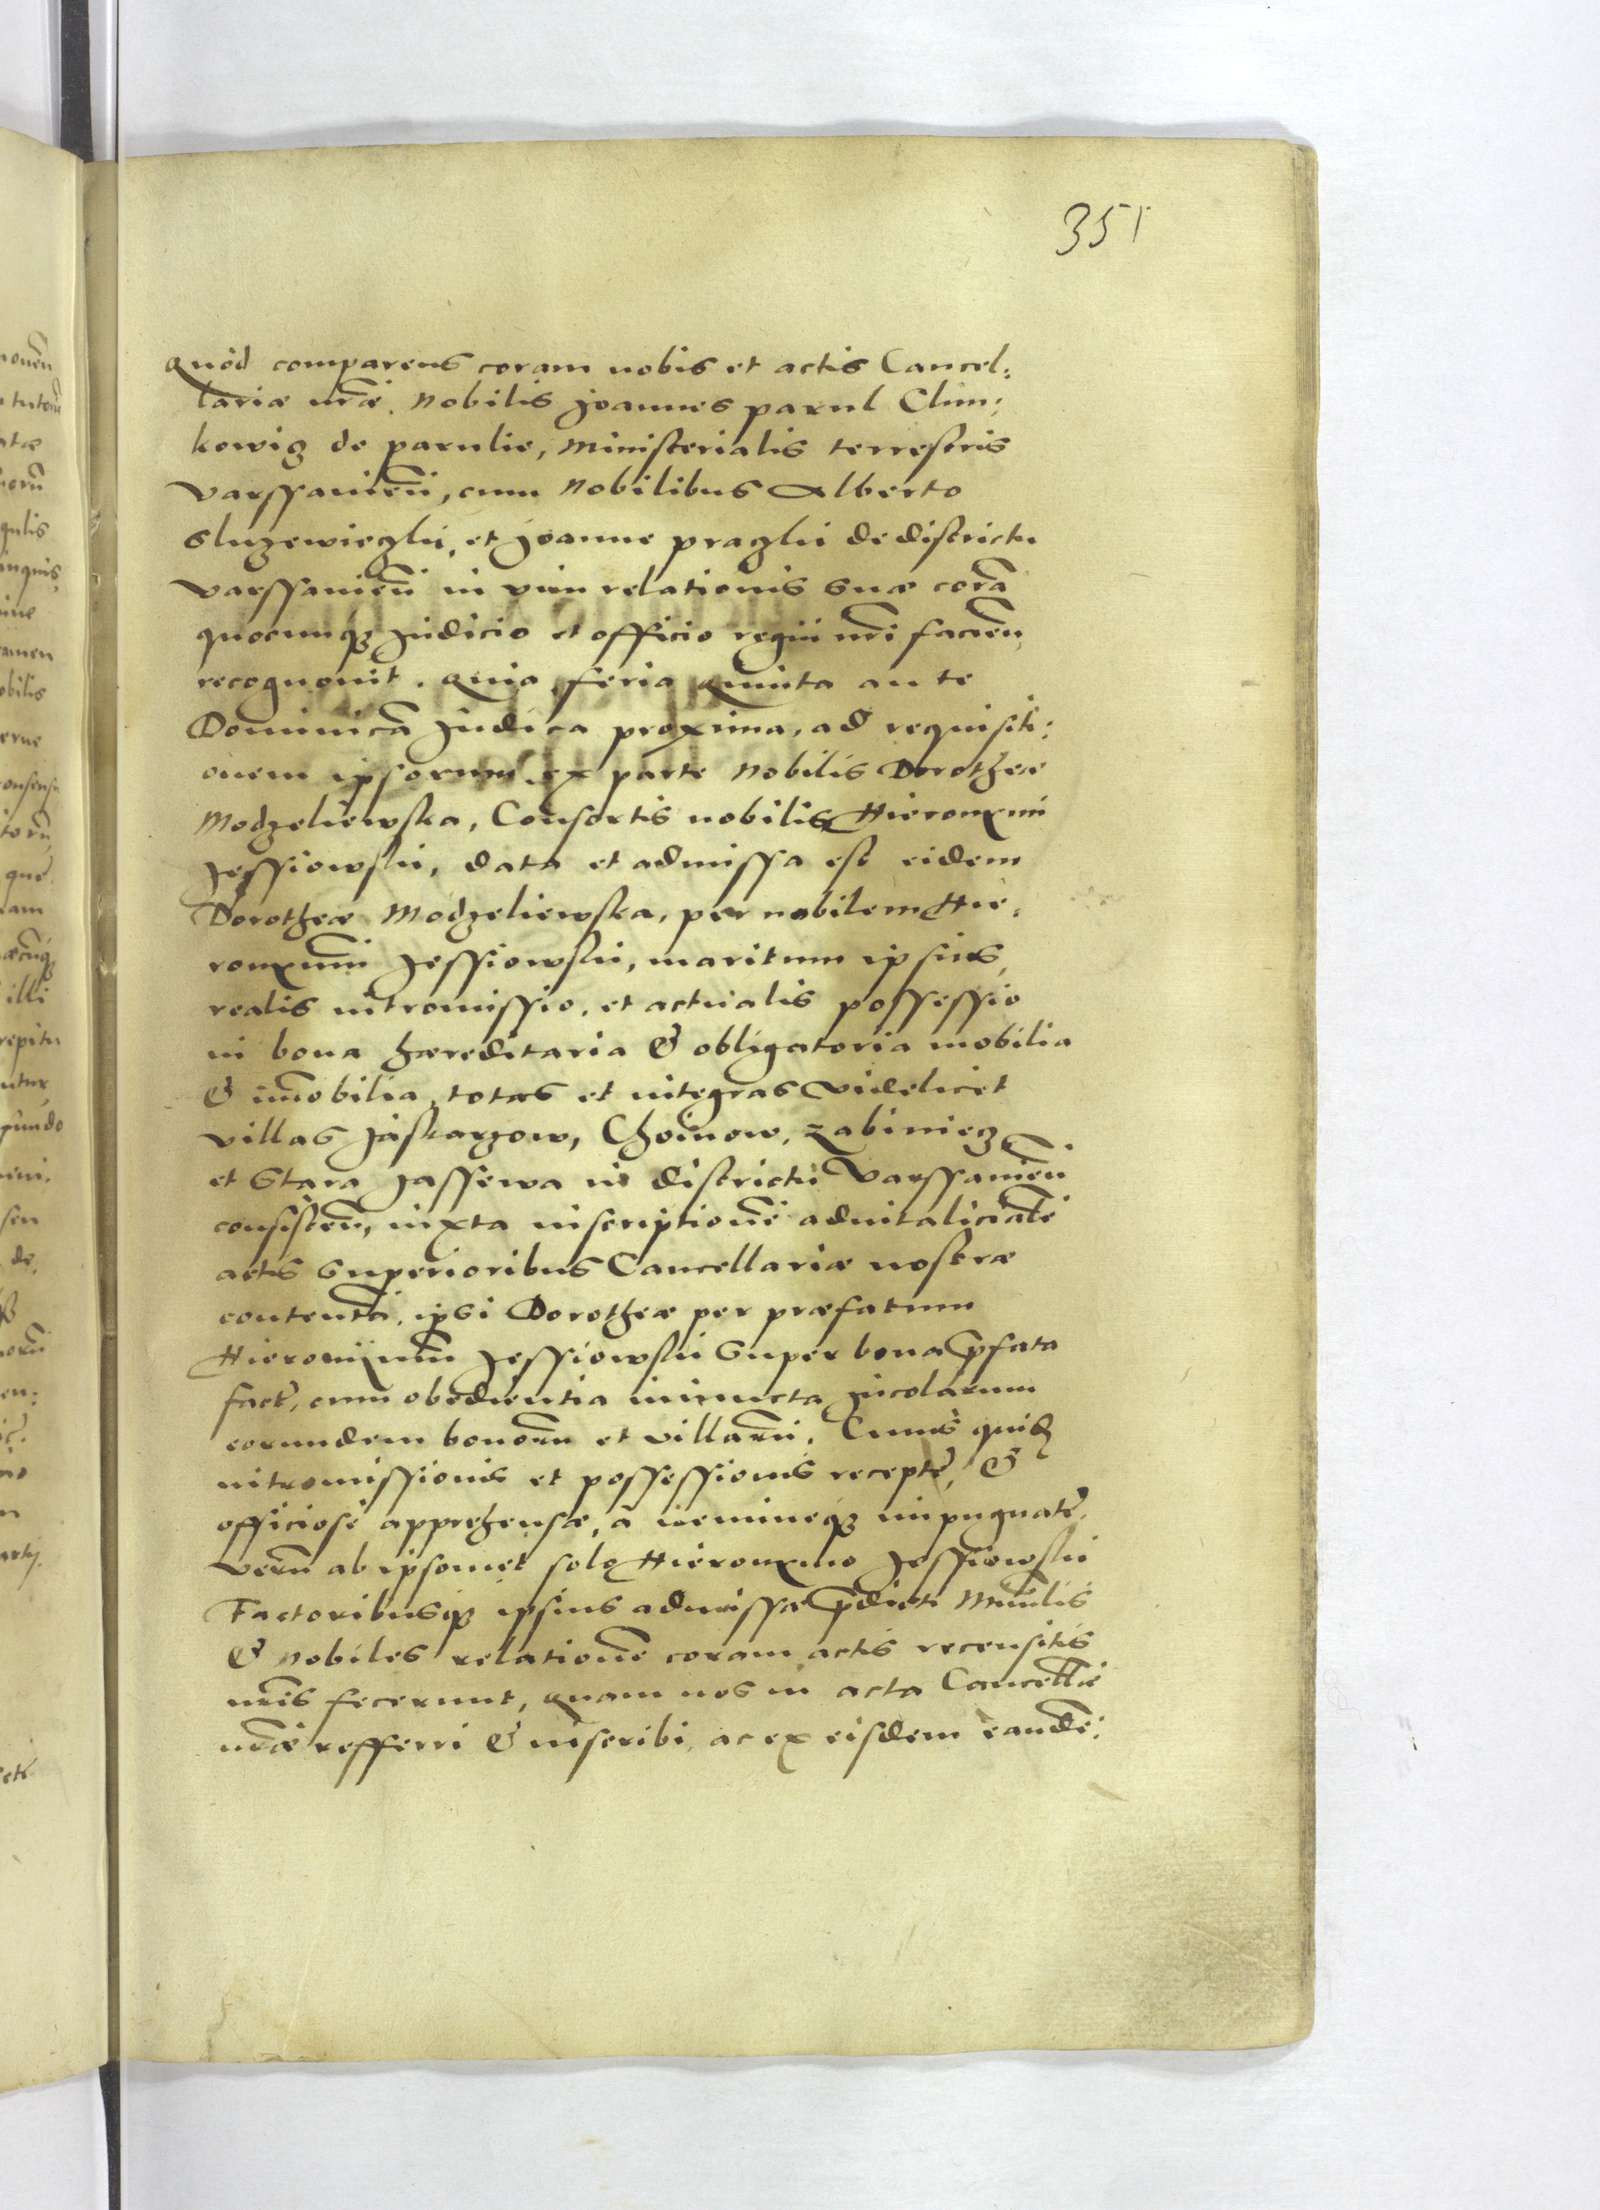 351
Quod comparens coram nobis et actis Cancel:
lariæ nr̃æ, Nobilis Joannes parul Clim:
kowig de parulie, Ministerialis terrestris
Varssauien̄, cum Nobilibus Alberto
Sluzewiezki, et Joanne praczki de districtu
Varssauien̄ in vim relationis suæ corã
quocunq; Judicio et officio regni nr̃i facien̄,
recognouit. Quia feria quinta ante
Dominicã Judica proxima, ad requisiti:
onem ipsorum ex parte Nobilis Dorotheæ
Modzeliewska, Consortis nobilis Hieronymi
Jessiowski, data et admissa est eidem
Dorotheæ Modzeliewska, per nobilem Hie:
ronymũ Jessiowski, maritum ipsius,
realis intromissio, et actualis possessio
in bona hæreditaria & obligatoria mobilia
& im̃obilia, totas et integras videlicet
villas Jaskarzow, Choinow, Zabiniecz
et Stara Jassewa in districtu Varssauien̄
consisten̄, iuxta inscriptionẽ aduitalicialẽ
actis superioribus Cancellariæ nostræ
contentã, ipsi Dorotheæ per præfatum
Hieronijmũ Jessiowski super bona p̄fata
fact̃, cum obedientia iniuncta Jncolarum
eorundem bonorũ et villarũ. Cuius quid̃
intromissionis et possessionis recept̃, &
officiosè apprehensæ, à nemineq; impugnat̃,
verũ ab ipsomet solo Hieronymo Jessiowski
Factoribusq; ipsius admissæ p̄dicti Mĩnlis
& Nobiles relationẽ coram actis recensitis
nr̃is fecerunt, quam nos in acta Cancell̃iæ
nr̃æ refferri & inscribi, ac ex eisdem eandẽ: